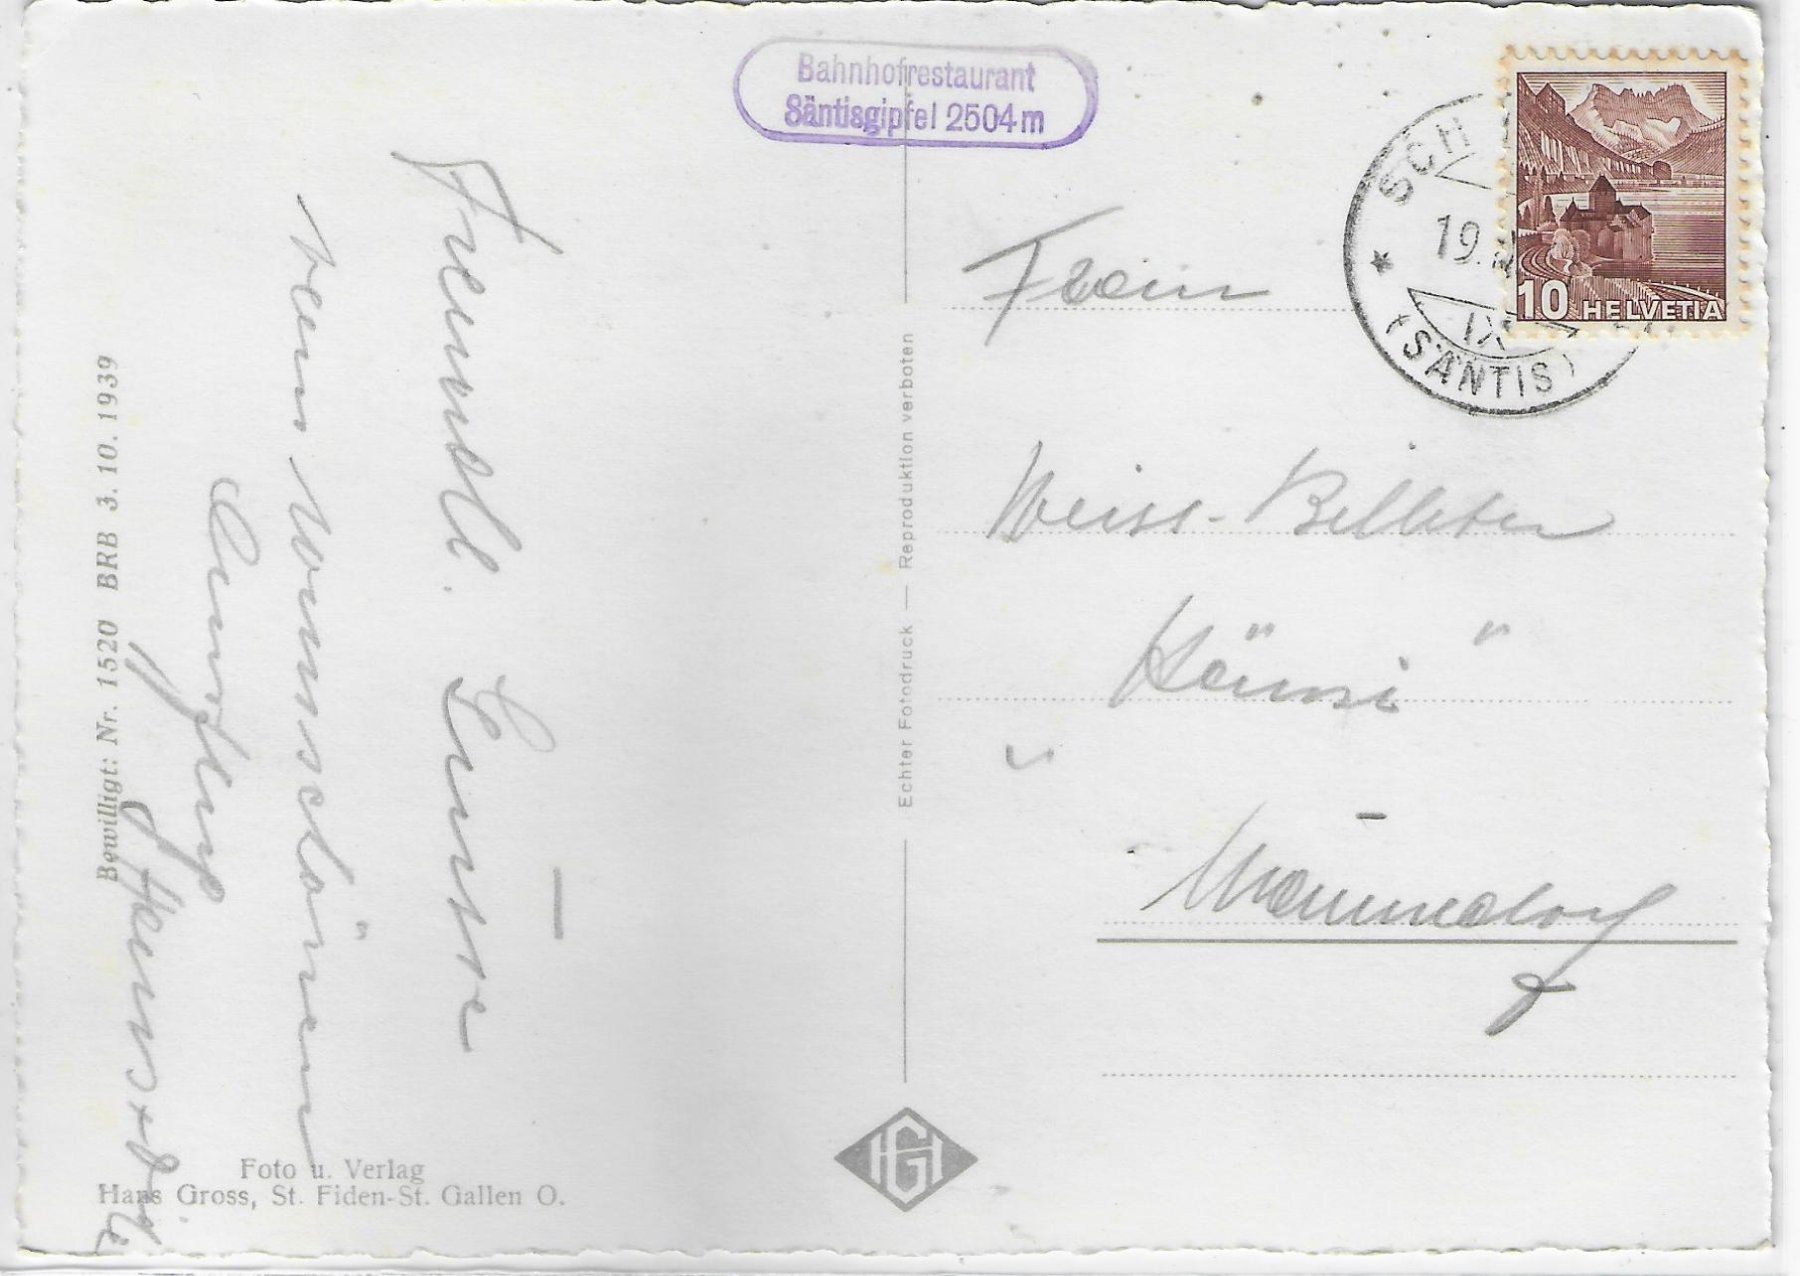 Bahnhofrestaurant
Säntisgipfel 2504 m
SCH
19.
IX
(SÄNTIS)
10 HELVETIA
Freundl. Grüsse
vom wunschönen
Ausflug
Hans +
Bewilligt: Nr. 1520 BRB 3. 10. 1939
Foto u. Verlag
Hans Gross, St. Fiden-St. Gallen O.
Echter Fotodruck — Reproduktion verboten
HG
Frau
Weiss-Billeter
" Hänsi "
Männedorf